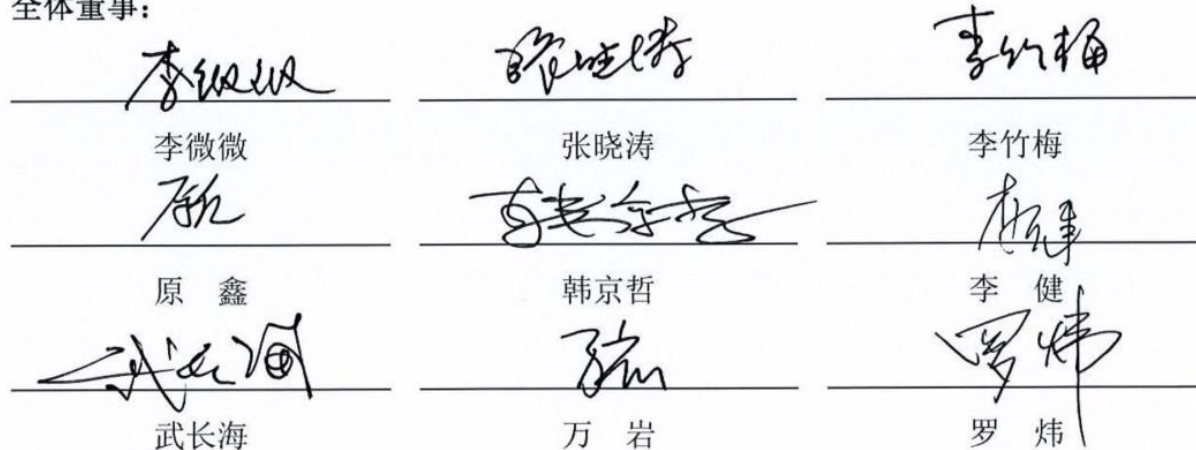 全体董事：
李微微 张晓涛 李竹梅
李微微 张晓涛 李竹梅
原鑫 韩京哲 李健
原 鑫 韩京哲 李 健
武长海 万岩 罗炜
武长海 万 岩 罗 炜